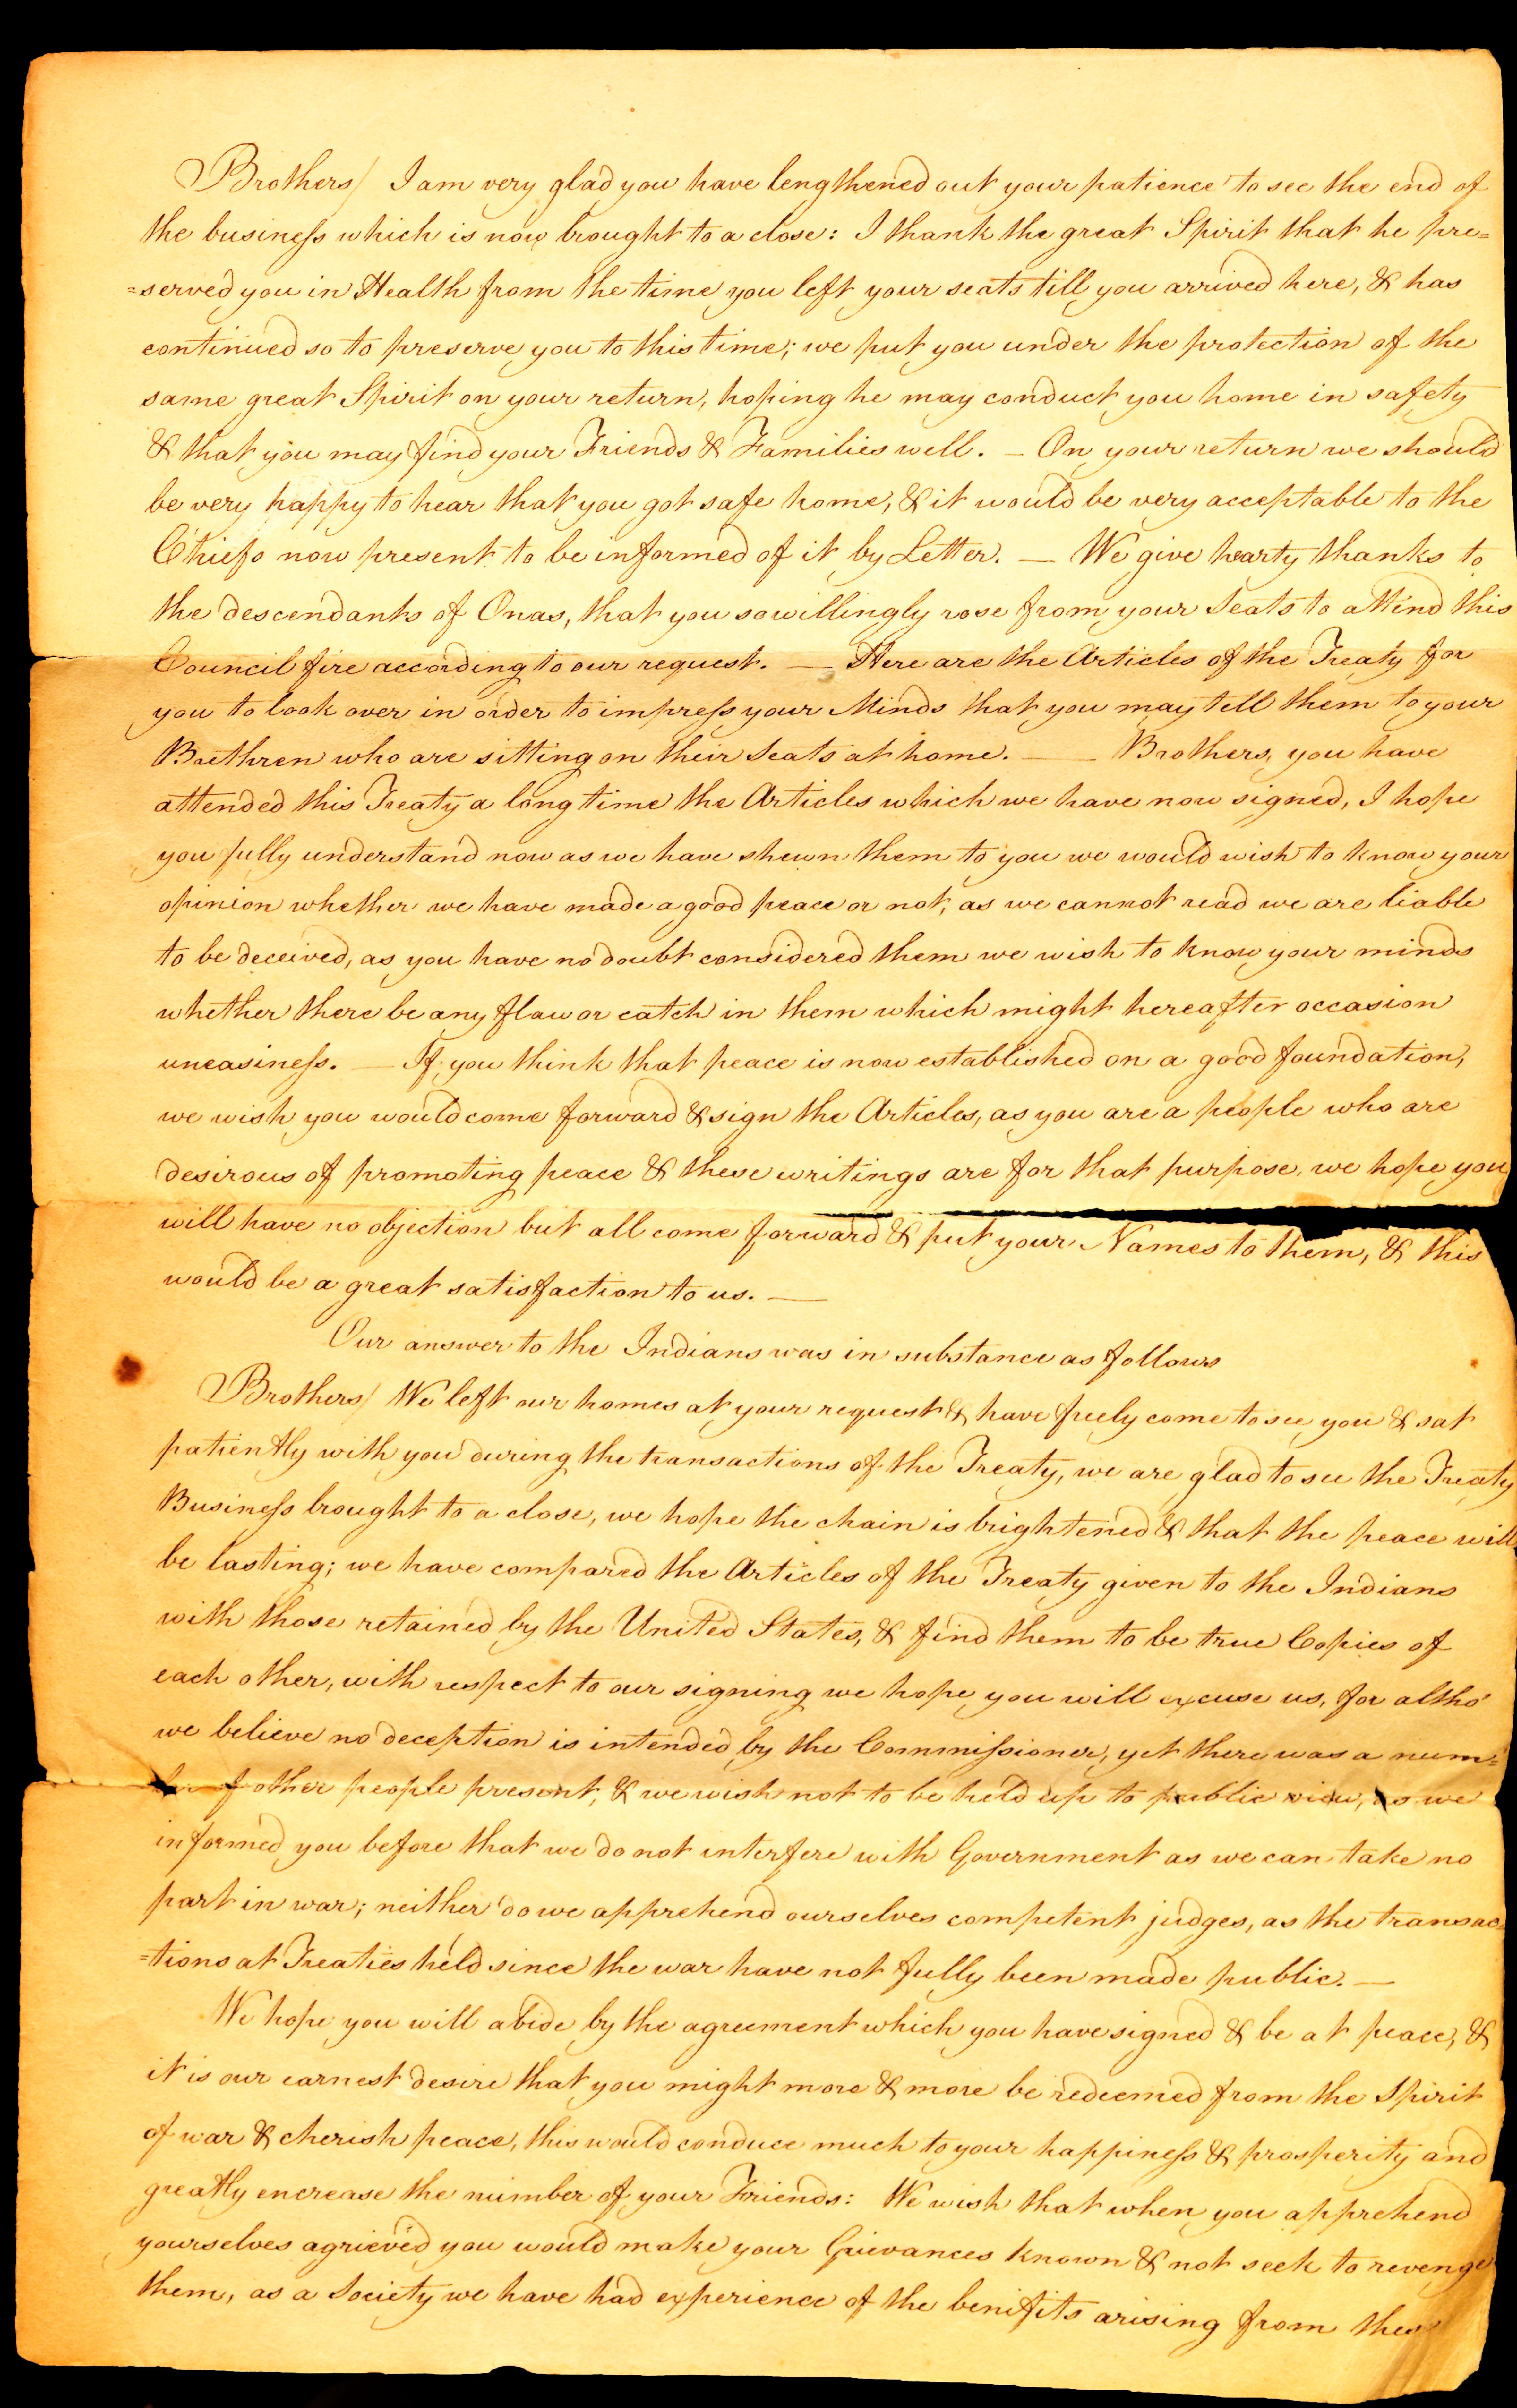 Brothers/ I am very glad you have lengthened out your patience to see the end of
the business which is now brought to a close: I thank the great Spirit that he pre=
=served you in Health from the time you left your seats till you arrived here, & has
continued so to preserve you to this time; we put you under the protection of the
same great Spirit on your return, hoping he may conduct you home in safety
& that you may find your Friends & Families well. — On your return we should
be very happy to hear that you got safe home, & it would be very acceptable to the
Chiefs now present to be informed of it by Letter. — We give hearty thanks to
the descendants of Onas, that you so willingly rose from your Seats to attend this
Council fire according to our request. — Here are the Articles of the Treaty for
you to look over in order to impress your Minds that you may tell them to your
Brethren who are sitting on their Seats at home. — Brothers, you have
attended this Treaty a long time the Articles which we have now signed, I hope
you fully understand now as we have shewn them to you we would wish to know your
opinion whether we have made a good peace or not, as we cannot read we are liable
to be deceived, as you have no doubt considered them we wish to know your minds
whether there be any flaw or catch in them which might hereafter occasion
uneasiness. — If you think that peace is now established on a good foundation,
we wish you would come forward & sign the Articles, as you are a people who are
desirous of promoting peace & these writings are for that purpose, we hope you
will have no objection but all come forward & put your Names to them, & this
would be a great satisfaction to us. —
Our answer to the Indians was in substance as follows
Brothers/ We left our homes at your request & have freely come to see you & sat
patiently with you during the transactions of the Treaty, we are glad to see the Treaty
Business brought to a close, we hope the chain is brightened & that the peace will
be lasting; we have compared the Articles of the Treaty given to the Indians
with those retained by the United States, & find them to be true Copies of
each other, with respect to our signing we hope you will excuse us, for altho'
we believe no deception is intended by the Commissioner, yet there was a num=
ber of other people present, & we wish not to be held up to public view, as we
informed you before that we do not interfere with Government as we can take no
part in war; neither do we apprehend ourselves competent judges, as the transac=
=tions at Treaties held since the war have not fully been made public. —
We hope you will abide by the agreement which you have signed & be at peace, &
it is our earnest desire that you might more & more be redeemed from the Spirit
of war & cherish peace, this would conduce much to your happiness & prosperity and
greatly encrease the number of your Friends: We wish that when you apprehend
yourselves agrieved you would make your Grievances known & not seek to revenge
them, as a Society we have had experience of the benifits arising from these